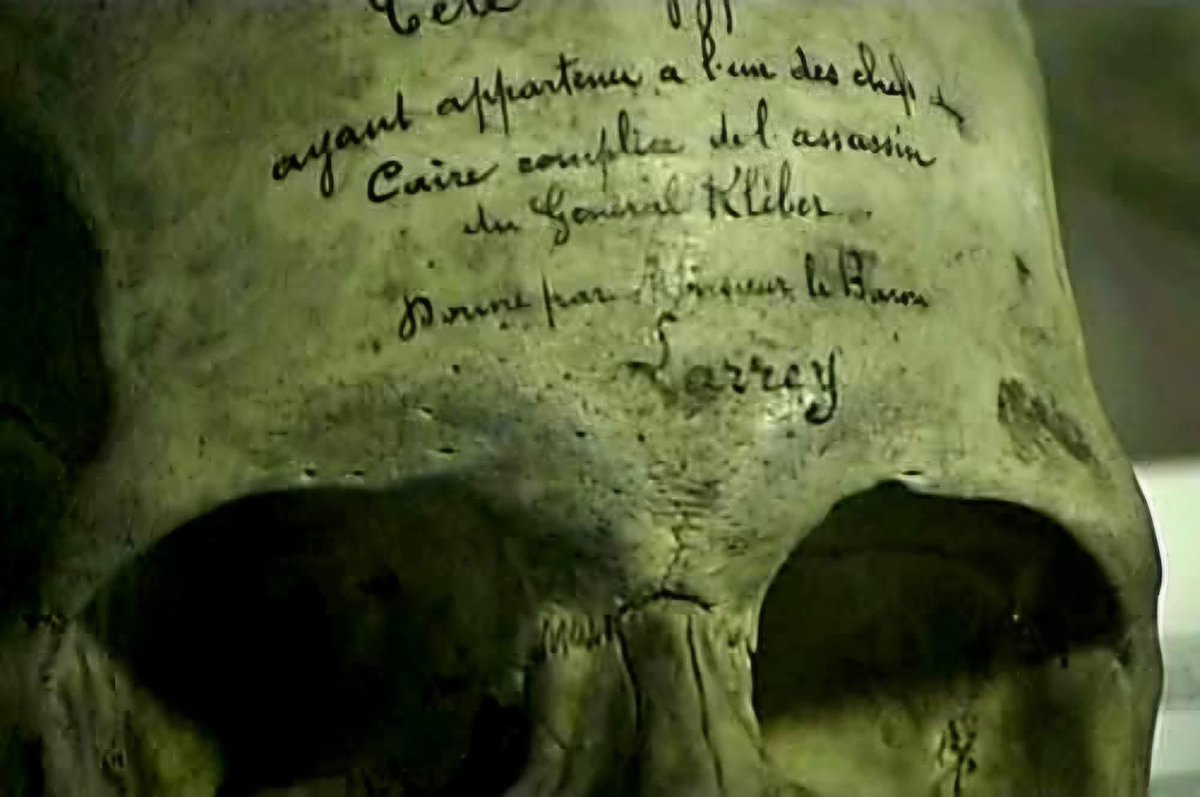 Tete
ayant appartenu a l'un des chefs
Caire complice de l'assassin
du General Kléber
Donné par Monsieur le Baron
Larrey